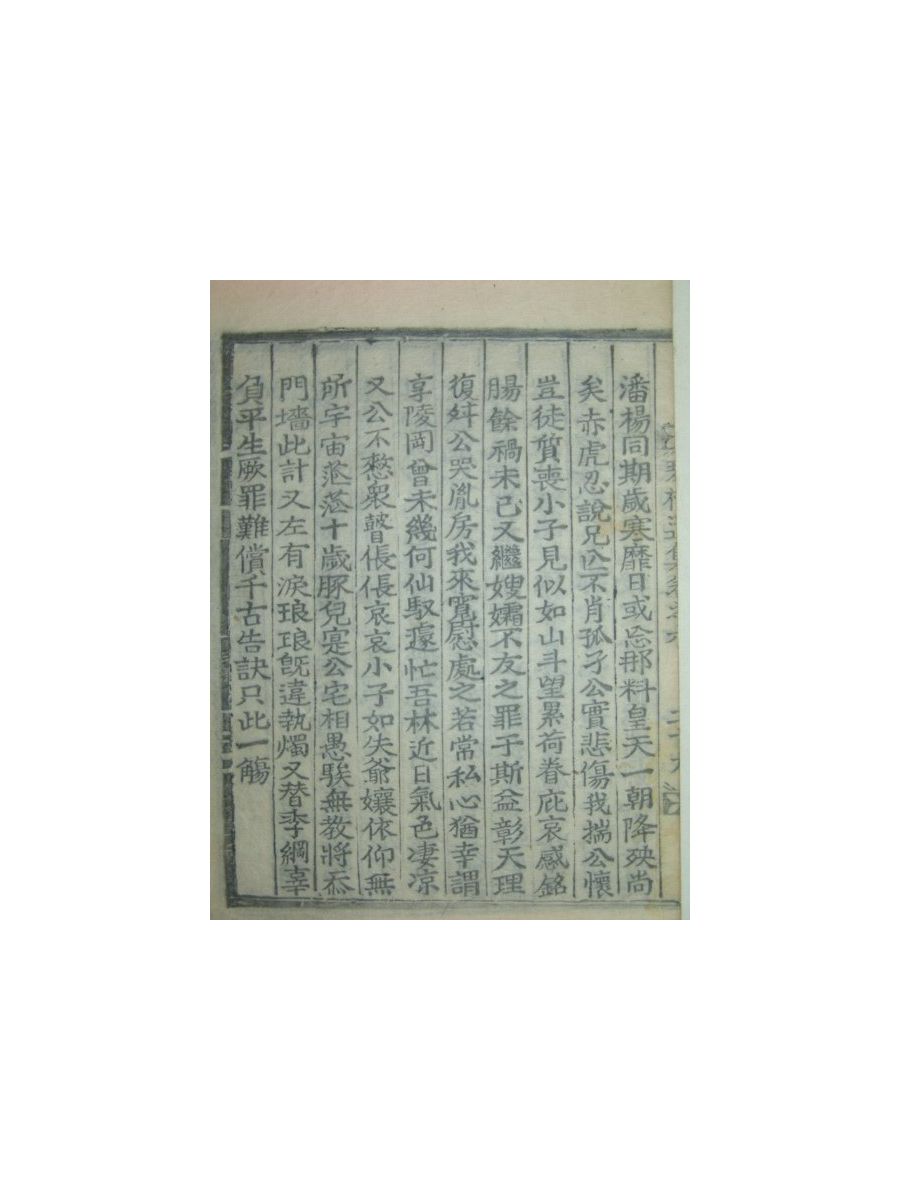 潘楊同期歲寒靡日或忘那料皇天一朝降殃尚
矣赤虎忍說兄亾不肖孤孑公實悲傷我揣公懷
豈徒質喪小子見似如山斗望累荷眷庇哀感銘
腸餘禍未已又繼嫂孀不友之罪于斯益彰天理
復舛公哭胤房我來寬慰處之若常私心猶幸謂
享陵岡曾未幾何仙馭遽忙吾林近日氣色凄凉
又公不憗衆瞽倀倀哀哀小子如失爺孃依仰無
所宇宙茫茫十歲豚兒寔公宅相愚騃無教將忝
門墻此計又左有淚琅琅旣違執燭又替季綱辜
負平生厥罪難償千古告訣只此一觴